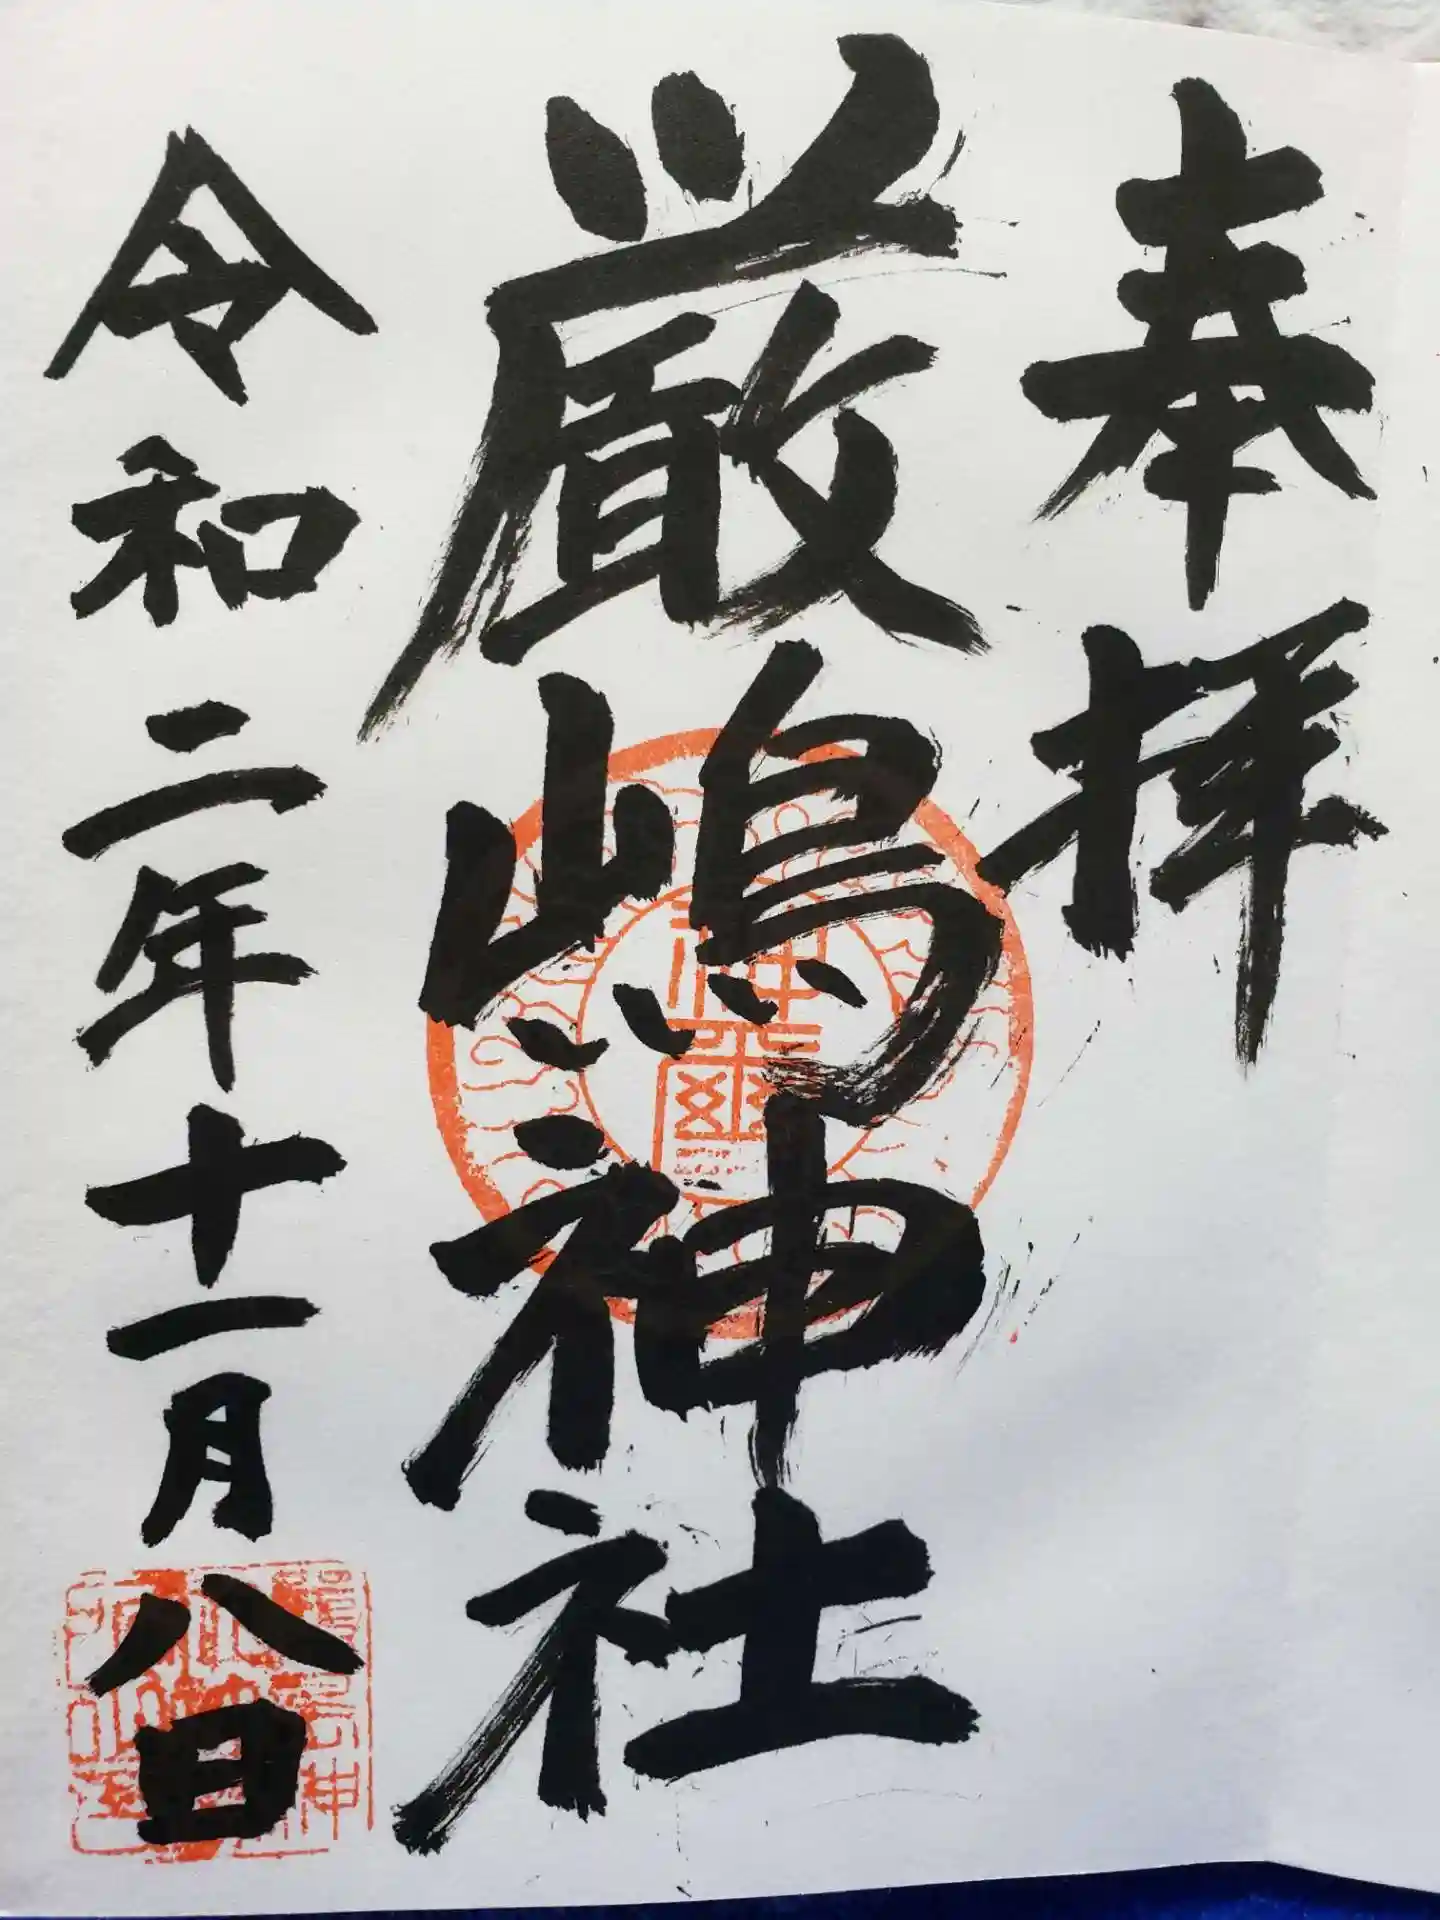 奉拝
厳嶋神社
令和二年十一月八日